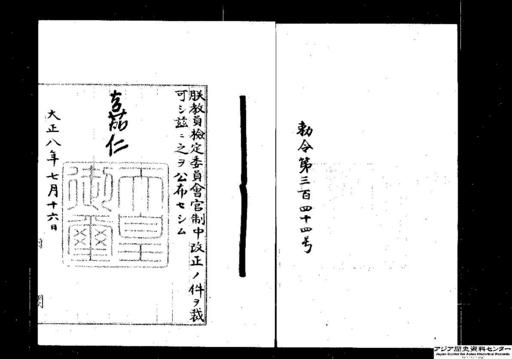 勅令第三百四十四号
朕教員檢定委員會官制中改正ノ件ヲ裁
可シ茲ニ之ヲ公布セシム
嘉仁
天皇御璽
大正八年七月十六日
アジア歴史資料センター
Japan Center for Asian Historical Records